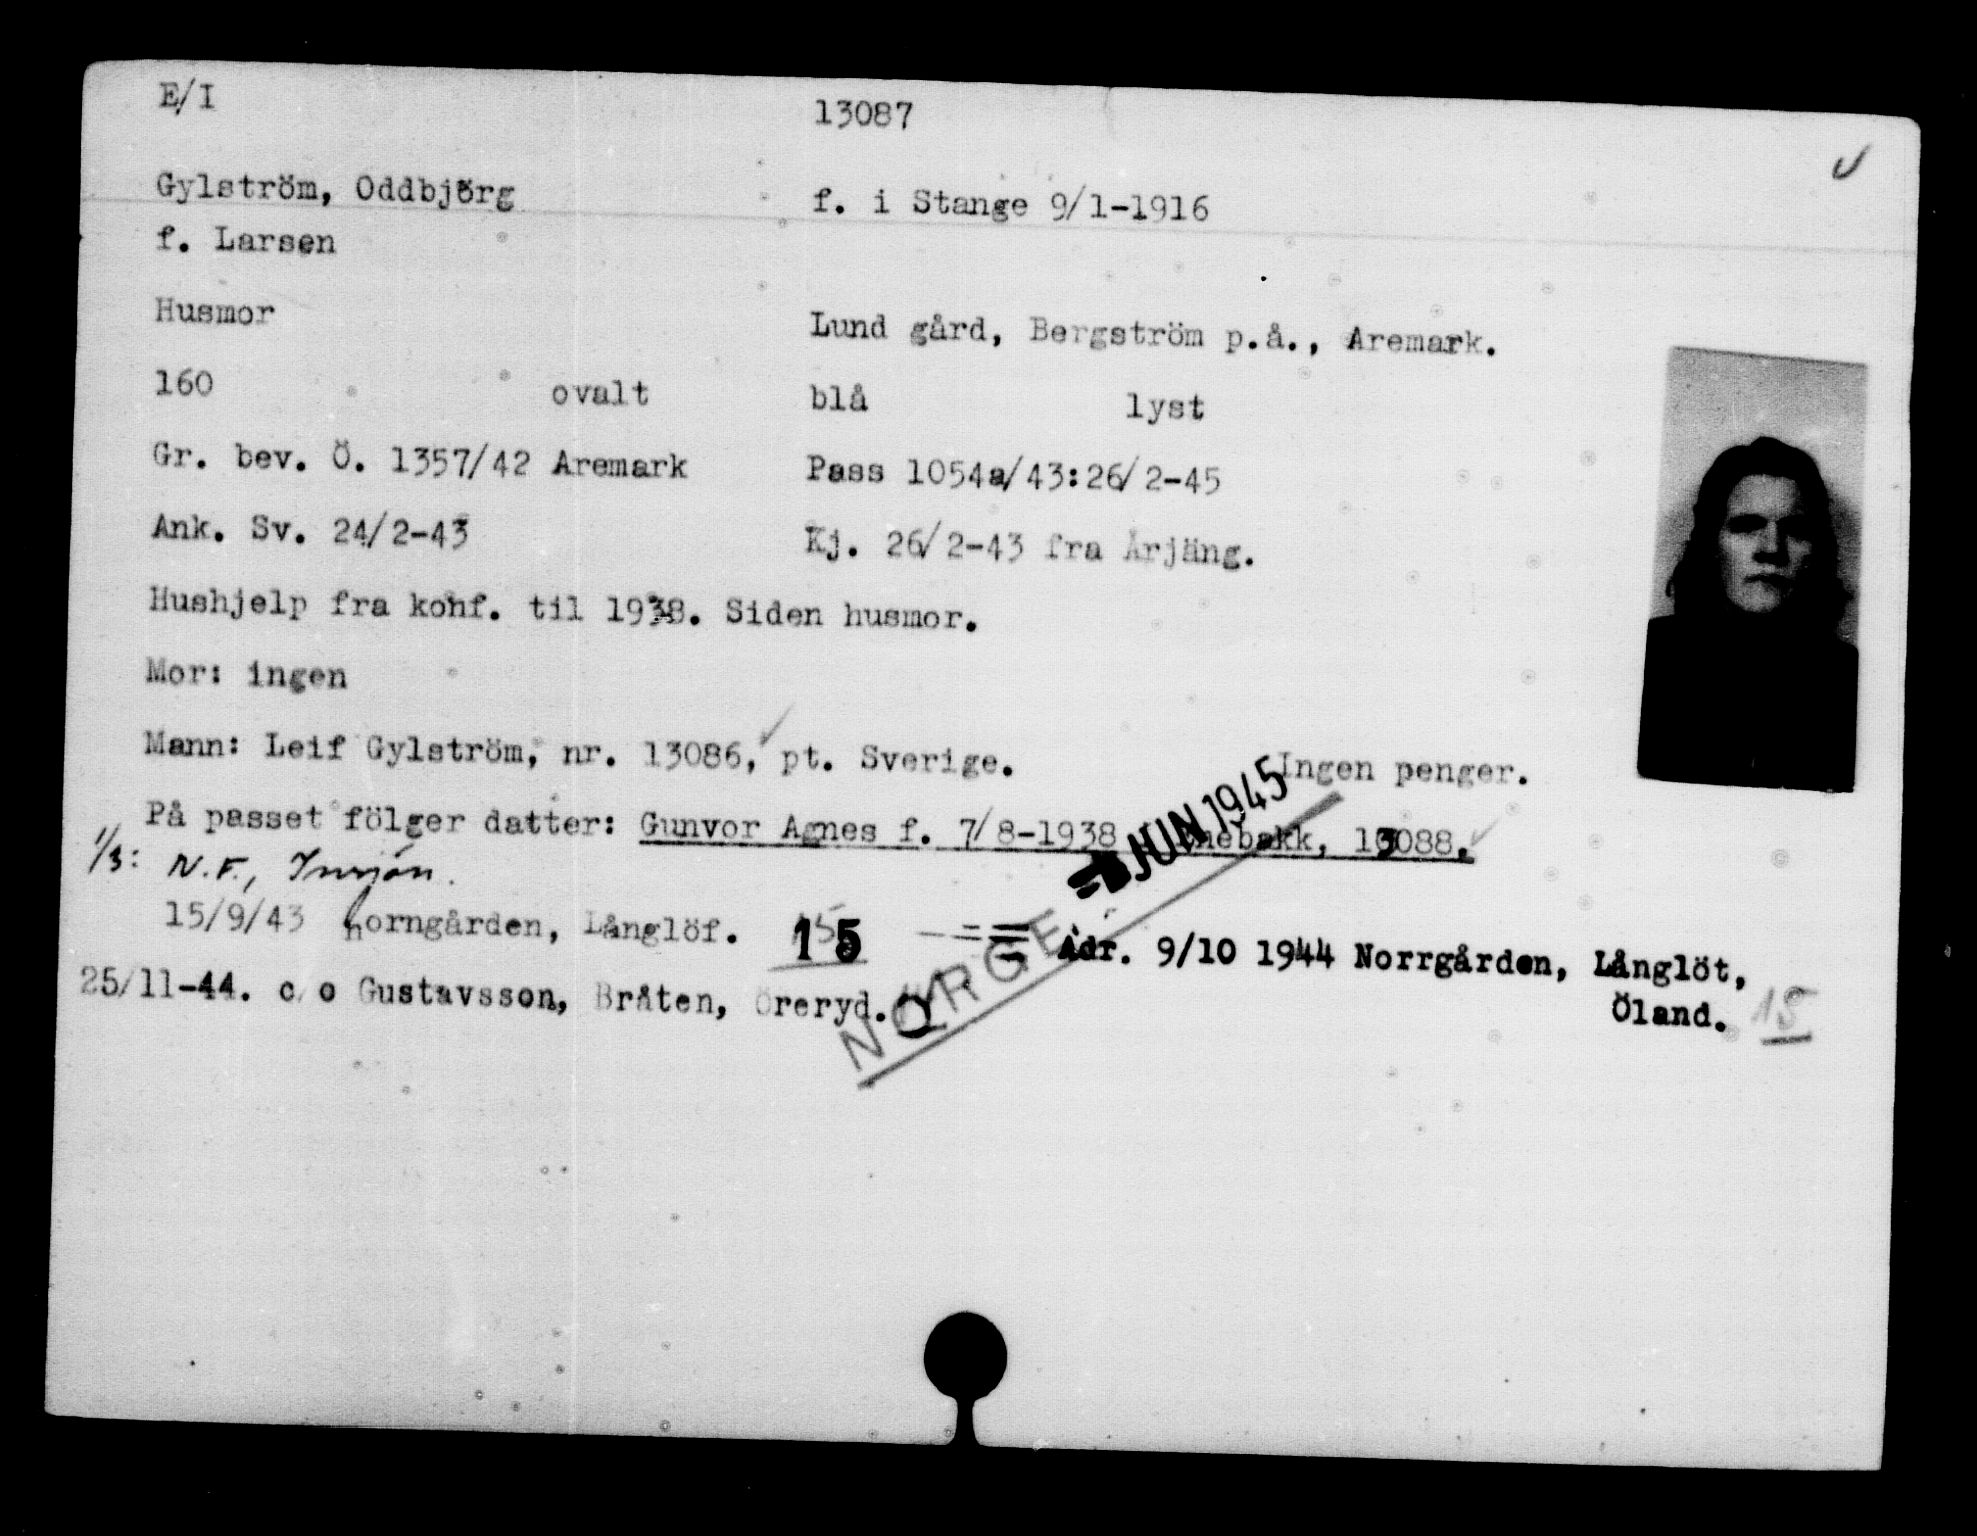 E/I 13087
Gylström, Oddbjörg f. i Stange 9/1-1916
f. Larsen
Husmor Lund gård, Bergström p.å., Aremark.
160 ovalt blå lyst
Gr. bev. Ö. 1357/42 Aremark Pass 1054a/43:26/2-45
Ank. Sv. 24/2-43 Kj. 26/2-43 fra Årjäng.
Hushjelp fra konf. til 1938. Siden husmor.
Mor: ingen
Mann: Leif Gylström, nr. 13086, pt. Sverige. Ingen penger.
På passet fölger datter: Gunvor Agnes f. 7/8-1938 13088.
JUN 1945
1/3: N.F.,
15/9/43 horngården, Långlöf. 15 Adr. 9/10 1944 Norrgården, Långlöt,
Öland. 15
25/11-44. c/o Gustavsson, Bråten, Öreryd.
NORGE